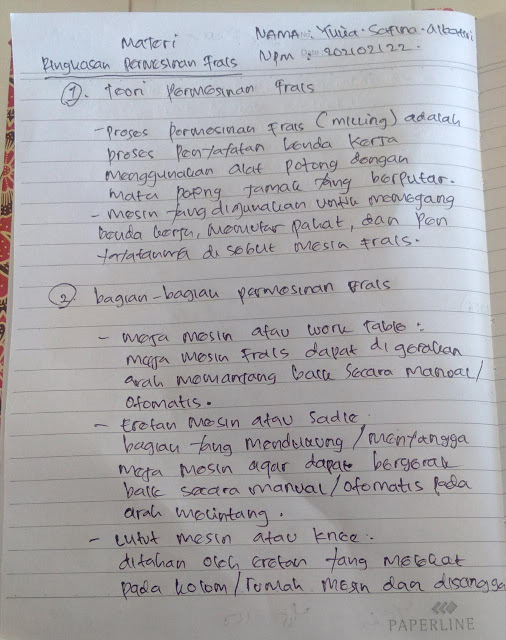 NAMA : Yulia. Safina. albateri
Materi
Npm : 202102122.
Ringkasan Permesinan Frais
1. teori permesinan frais
- Proses permesinan Frais (milling) adalah
proses penyayatan benda kerja
menggunakan alat potong dengan
mata potong jamak yang berputar.
- mesin yang digunakan untuk memegang
benda kerja, memutar pahat, dan pen
yayatannya di sebut mesin frais.
2. bagian-bagian permesinan frais
- meja mesin atau work table :
meja mesin frais dapat di gerakan
arah memanjang baik secara manual/
otomatis.
- eretan mesin atau sadle.
bagian yang mendukung/menyangga
meja mesin agar dapat bergerak
baik secara manual/otomatis pada
arah melintang.
- lutut mesin atau knee :
ditahan oleh eretan yang melekat
pada kolom/rumah mesin dan disangga
PAPERLINE